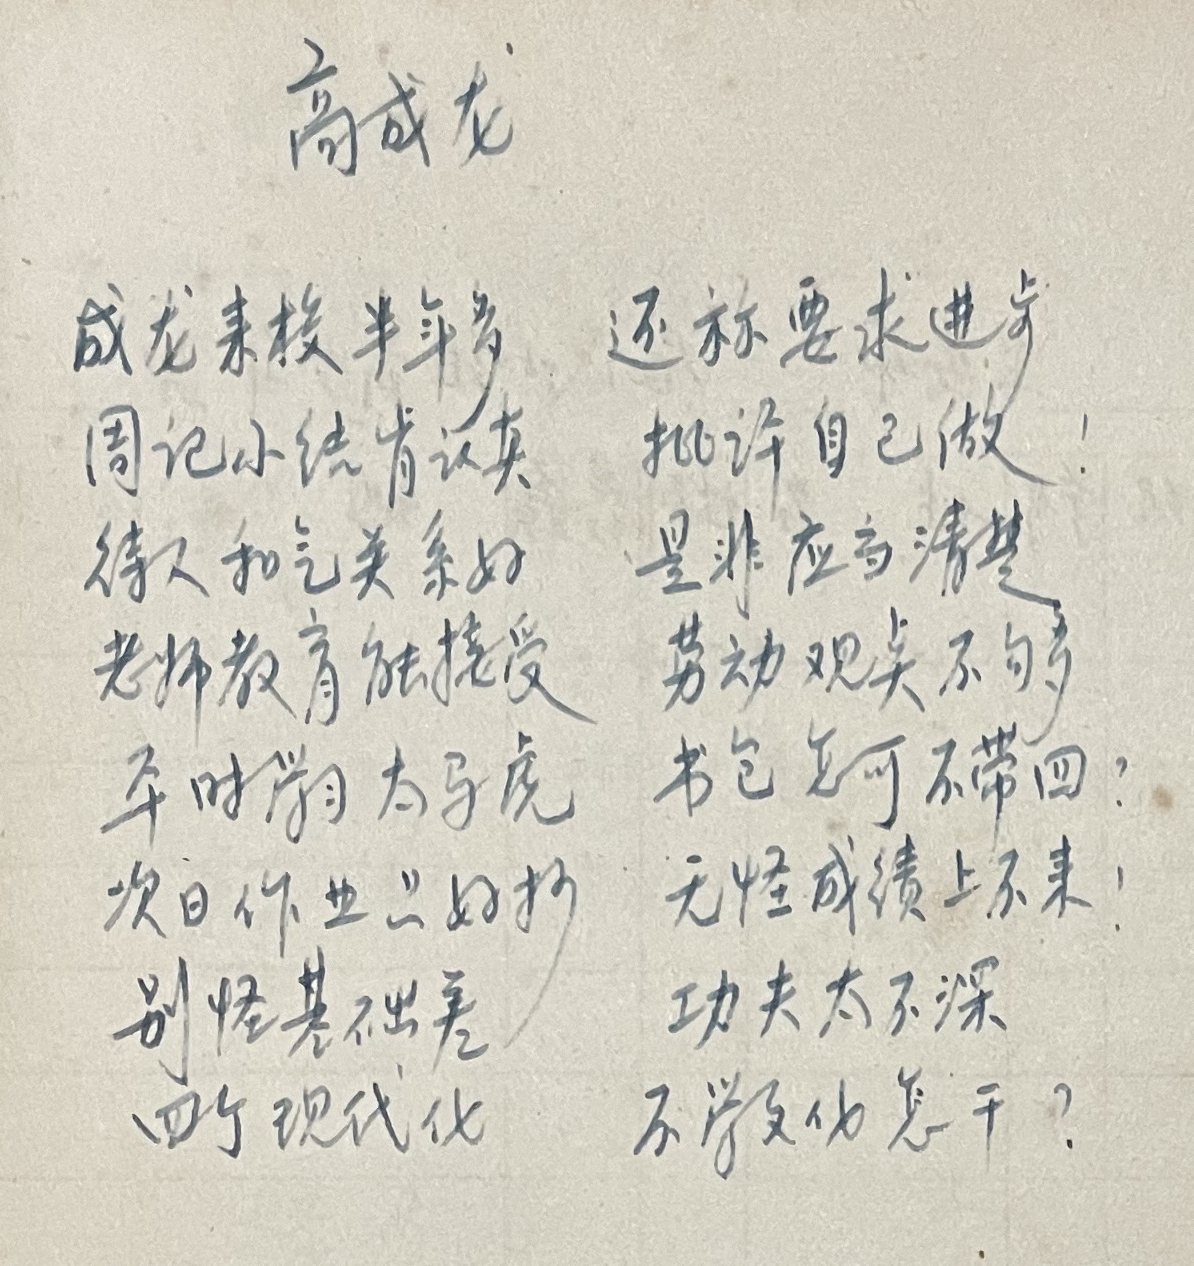 高成龙
成龙来校半年多 还称要求进步
周记小结肯认真 批评自己做!
待人和气关系好 是非应当清楚
老师教育能接受 劳动观点不够
平时学习太马虎 书包怎可不带回?
次日作业只好抄 无怪成绩上不来!
别怪基础差 功夫太不深
四个现代化 不学文化怎干?